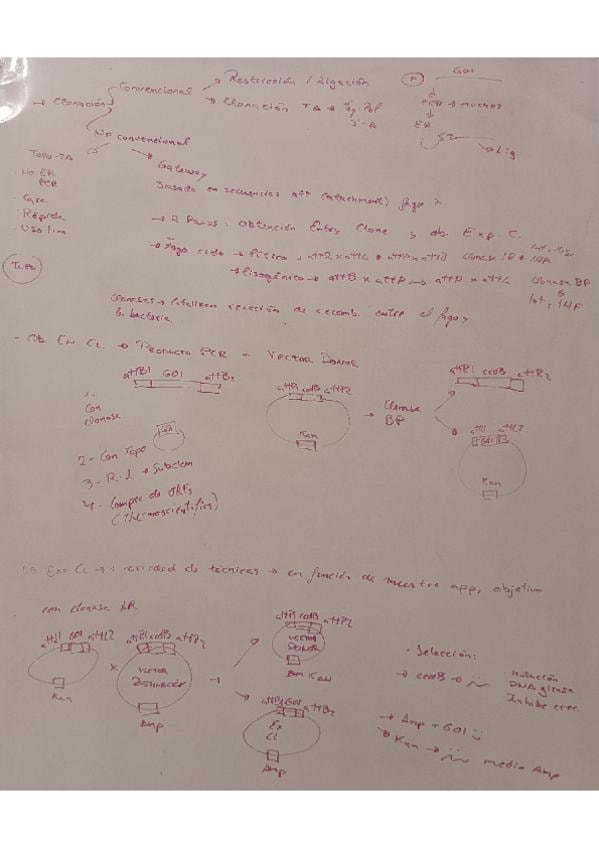 → Clonación
Convencional
→ Restricción / Ligación
→ Clonación TA → Taq. Pol
3'-A
GOI
PCR → nucleos
ER
→ Lig
No convencional
TOPO-TA
· No ER
PCR
· Cara
· Rápida
TOPO
Gateway
Basado en secuencias att (attachment) fago λ.
→ 2 Pasos: Obtención Entry Clone y ob. Exp. C.
→ Fago ciclo → lítico, attR x attL → attP x attB Clonasa LR
→ lisogénico → attB x attP → attR x attL Clonasa BP
Int, IHF
Clonasas → Catalizan reacción de recomb. entre el fago y
la bacteria
- OB EN CL. → Producto PCR + Vector Donor
attB1 GOI attB2
attP1 ccdB attP2
Kan
→ Clonasa
BP
attR1 ccdB attR2
attL1 attL2
GOI
Kan
1.-
Con
clonasa
GOI
2.- Con Topo
3.- R.L → Subclon
4.- Compra de ORFs
(Thermoscientific)
OB Exp CL → Variedad de técnicas → en función de nuestra app, objetivo
con clonasa LR
attL1 GOI attL2
Kan
x
attR1 ccdB attR2
VECTOR
DESTINACIÓN
Amp
→
attP1 ccdB attP2
VECTOR
DONOR
Kan
attB1 GOI attB2
Ex
CL
Amp
· Selección:
→ ccdB →
· Mutación
DNA girasa
Inhibe crec.
→ Amp + GOI
→ Kan → medio Amp